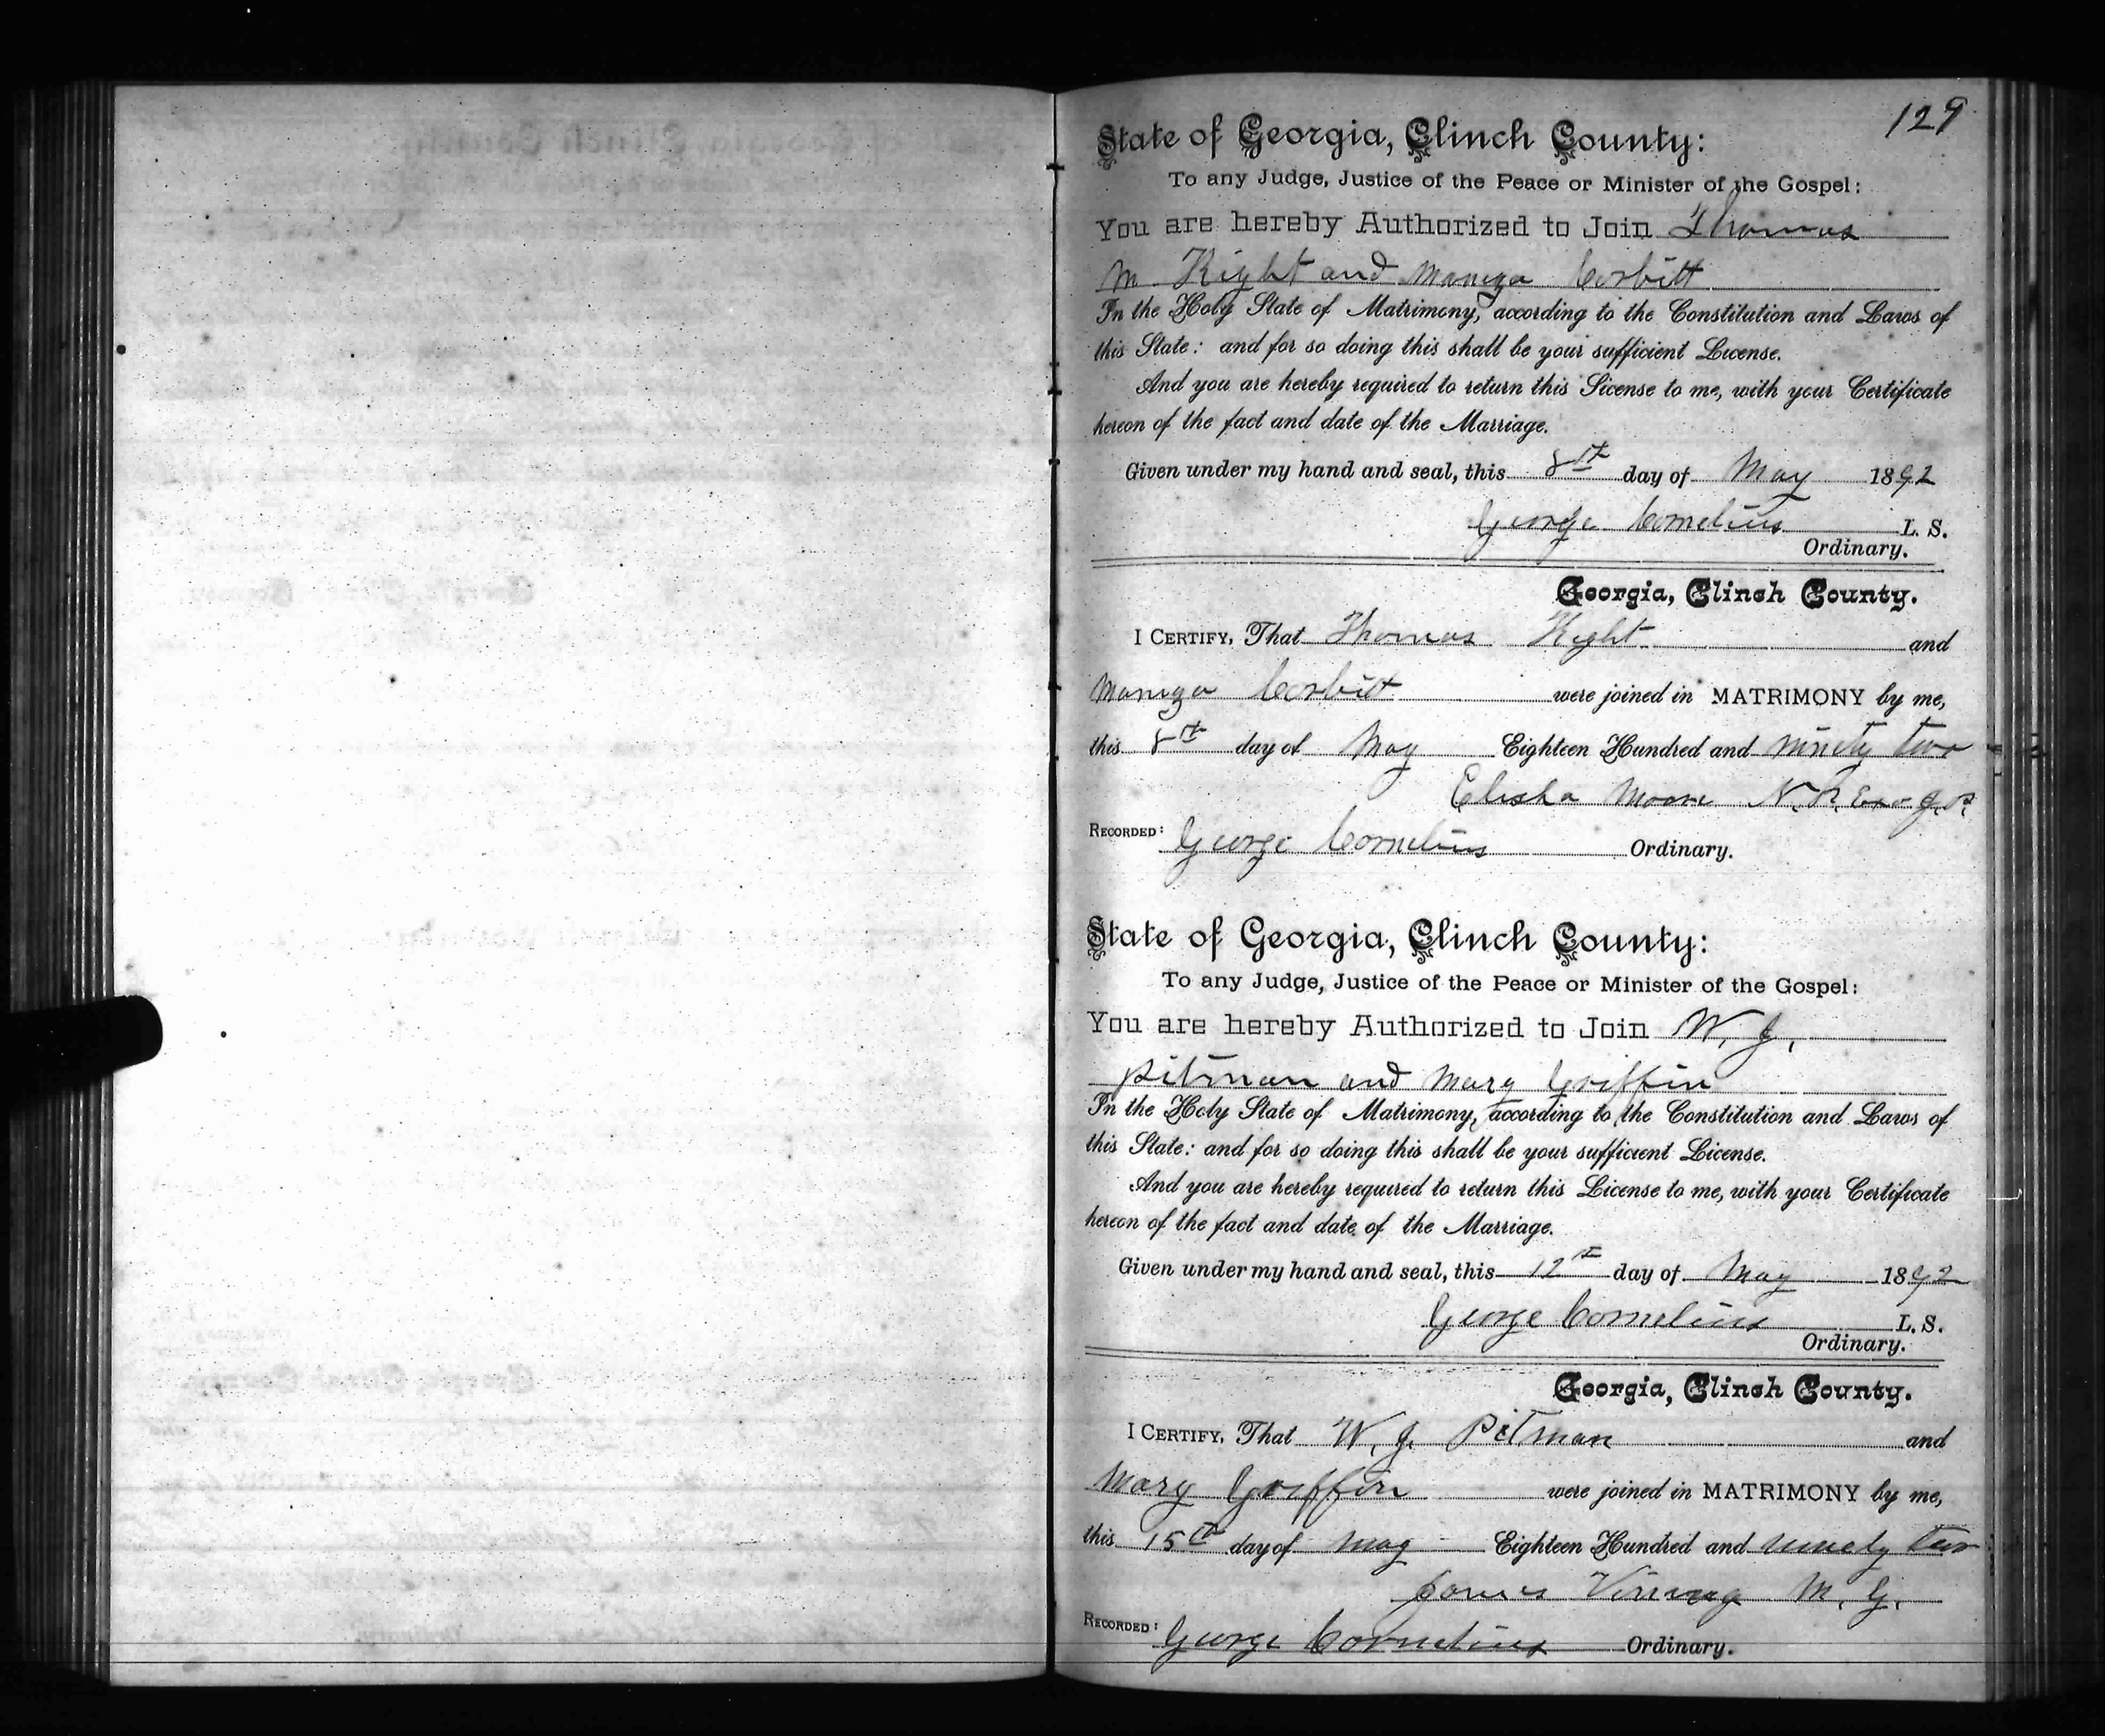 129
State of Georgia, Clinch County:
To any Judge, Justice of the Peace or Minister of the Gospel:
You are hereby Authorized to Join Thomas
M. Kight and Maniza Corbitt
In the Holy State of Matrimony, according to the Constitution and Laws of
this State: and for so doing this shall be your sufficient License.
And you are hereby required to return this License to me, with your Certificate
hereon of the fact and date of the Marriage.
Given under my hand and seal, this 8th day of May 1892
George Cornelius L. S.
Ordinary.
Georgia, Clinch County.
I CERTIFY, That Thomas Kight and
Maniza Corbitt were joined in MATRIMONY by me,
this 8th day of May Eighteen Hundred and ninety two
Elisha Moore N. P. Exo J. P.
RECORDED: George Cornelius Ordinary.
State of Georgia, Clinch County:
To any Judge, Justice of the Peace or Minister of the Gospel:
You are hereby Authorized to Join W. J.
Pitman and Mary Griffin
In the Holy State of Matrimony, according to the Constitution and Laws of
this State: and for so doing this shall be your sufficient License.
And you are hereby required to return this License to me, with your Certificate
hereon of the fact and date of the Marriage.
Given under my hand and seal, this 12th day of May 1892
George Cornelius L. S.
Ordinary.
Georgia, Clinch County.
I CERTIFY, That W. J. Pitman and
Mary Griffin were joined in MATRIMONY by me,
this 15th day of May Eighteen Hundred and ninety two
James M. G.
RECORDED: George Cornelius Ordinary.